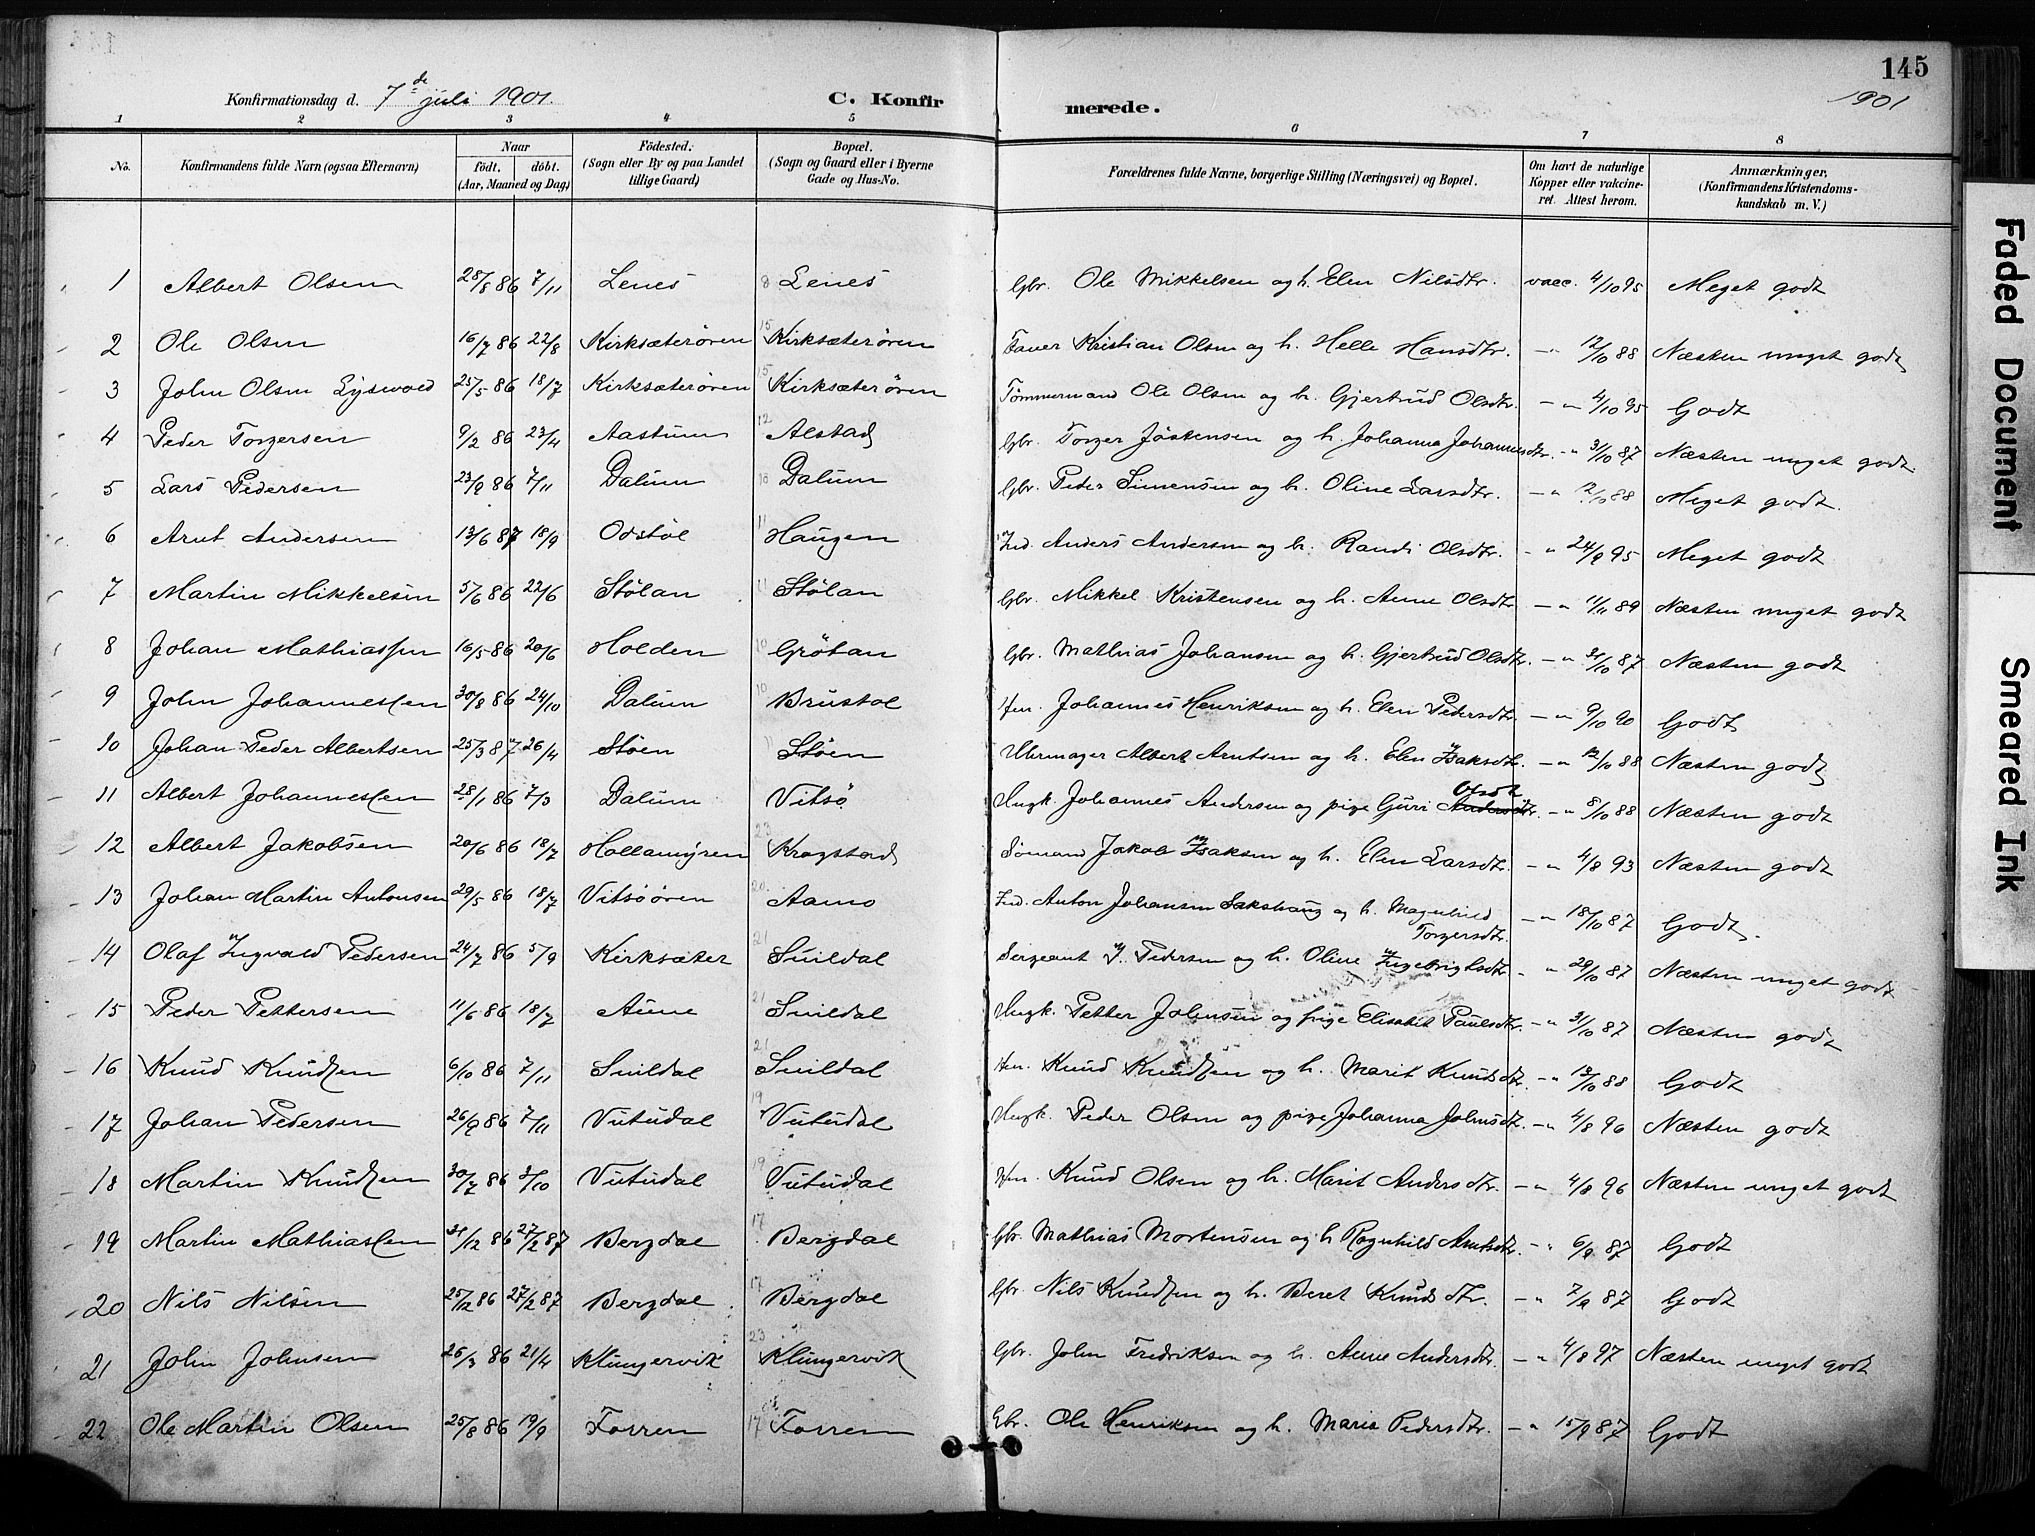 145
1901
Konfirmationsdag d. 7de juli 1901. C. Konfirmerede.
1 2 3 4 5 6 7 8
No. Konfirmandens fulde Navn (ogsaa Efternavn) Naar födt. döbt. (Aar, Maaned og Dag) Födested. (Sogn eller By og paa Landet tillige Gaard) Bopæl. (Sogn og Gaard eller i Byerne Gade og Hus-No. Forældrenes fulde Navne, borgerlige Stilling (Næringsvei) og Bopæl. Om havt de naturlige Kopper eller vakcineret. Attest herom. Anmærkninger. (Konfirmandens Kristendomskundskab m. V.)
1 Albert Olsen 28/8 86 7/11 Lenes 8 Lenes Gbr. Ole Mikkelsen og h. Elen Nilsdtr. vacc. 4/10 95 Meget godt
2 Ole Olsen 16/7 86 22/8 Kirksæterøren 15 Kirksæterøren Kristian Olsen og h. Helle Hansdtr. -"- 12/10 88 Næsten meget godt
3 John Olsen 25/5 86 18/7 Kirksæterøren 15 Kirksæterøren Tømmermand Ole Olsen og h. Gjertrud Olsdtr. -"- 4/10 95 Godt
4 Peder Torgersen 9/2 86 23/4 Aastum 12 Alstad Gbr. Torger Jöstensen og h. Johanna Johannesdtr. -"- 31/10 87 Næsten meget godt
5 Lars Pedersen 23/9 86 7/11 Dalum 10 Dalum Gbr. Peder Simensen og h. Oline Larsdtr. -"- 12/10 88 Meget godt.
6 Arnt Andersen 13/6 87 18/9 Odstöl 11 Haugen Ind. Anders Andersen og h. Randi Olsdtr. -"- 24/9 95 Meget godt
7 Martin Mikkelsen 5/6 86 22/6 Stölan 11 Stölan Gbr. Mikkel Kristensen og h. Anne Olsdtr -"- 11/11 89 Næsten meget godt
8 Johan Mathiassen 16/5 86 20/6 Holden 10 Grötan Gbr. Mathias Johansen og h. Gjertrud Olsdtr. -"- 31/10 87 Næsten godt
9 John Johannessen 30/8 86 24/10 Dalum 10 Brustöl Hm. Johannes Henriksen og h. Elen Pedersdtr. -"- 9/10 90 Godt
10 Johan Peder Albertsen 25/3 87 26/4 Stöen 11 Stöen Uhrmager Albert Arntsen og h. Elen Isaksdtr. -"- 12/10 88 Næsten godt
11 Albert Johannessen 28/1 86 7/3 Dalum Vitsö Ungk. Johannes Andersen og pige Guri Andersdtr. Olsdt -"- 8/10 88 Næsten godt
12 Albert Jakobsen 20/6 86 18/7 Hollamyren 23 Krogstad Sömand Jakob Isaksen og h. Elen Larsdtr. -"- 4/8 93 Næsten godt
13 Johan Martin Antonsen 29/5 86 18/7 Vitsöören 20 Aamo Ind. Anton Johansen Sakshaug og h. Magnhild Torgersdtr. -"- 18/10 87 Godt.
14 Olaf Ingvald Pedersen 24/7 86 5/9 Kirksæter 21 Snildal Sergeant I. Pedersen og h. Oline Ingebrigtsdtr. -"- 29/10 87 Næsten meget godt
15 Peder Pettersen 11/6 86 18/7 Aune 21 Snildal Ungk. Petter Johnsen og pige Elisabet Paulsdtr. -"- 31/10 87 Næsten godt
16 Knud Knudsen 6/10 86 7/11 Snildal 21 Snildal Hm. Knud Knudsen og h. Marit Knudsdtr. -"- 13/10 88 Godt
17 Johan Pedersen 26/9 86 7/11 Vutudal 19 Vutudal Ungk. Peder Olsen og pige Johanna Johnsdtr. -"- 4/8 96 Næsten godt
18 Martin Knudsen 30/7 86 3/10 Vutudal 19 Vutudal Hm. Knud Olsen og h. Marit Andersdtr. -"- 4/8 96 Næsten meget godt
19 Martin Mathiassen 31/12 86 27/2 87 Bergdal 17 Bergdal Gbr. Mathias Mortensen og h Ragnhild Arntsdtr. -"- 6/9 87 Godt
20 Nils Nilsen 25/12 86 27/2 87 Bergdal 17 Bergdal Gbr. Nils Knudsen og h. Beret Knudsdtr. -"- 7/9 87 Godt
21 John Johnsen 26/3 86 21/4 Klungervik 23 Klungervik Gbr. John Fredriksen og h. Anne Andersdtr. -"- 4/8 97 Næsten meget godt
22 Ole Martin Olsen 25/8 86 19/9 Forren 17 Forren Gbr. Ole Henriksen og h. Maria Pedersdtr. -"- 15/9 87 Godt
Faded Document
Smeared Ink